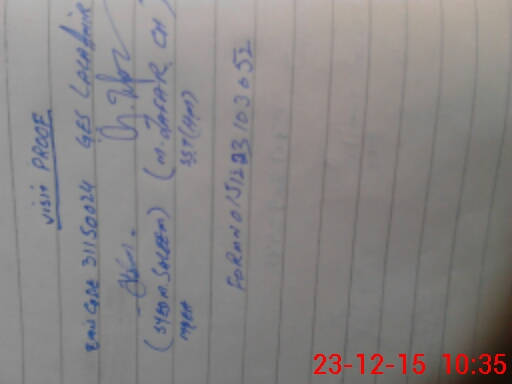 visit PROOF
EMIS CODE 31150024 GES
(SYED M. SALEEM) (M. JAFAR CH)
MEA SST (HM)
FORM NO 151223103052
23-12-15 10:35